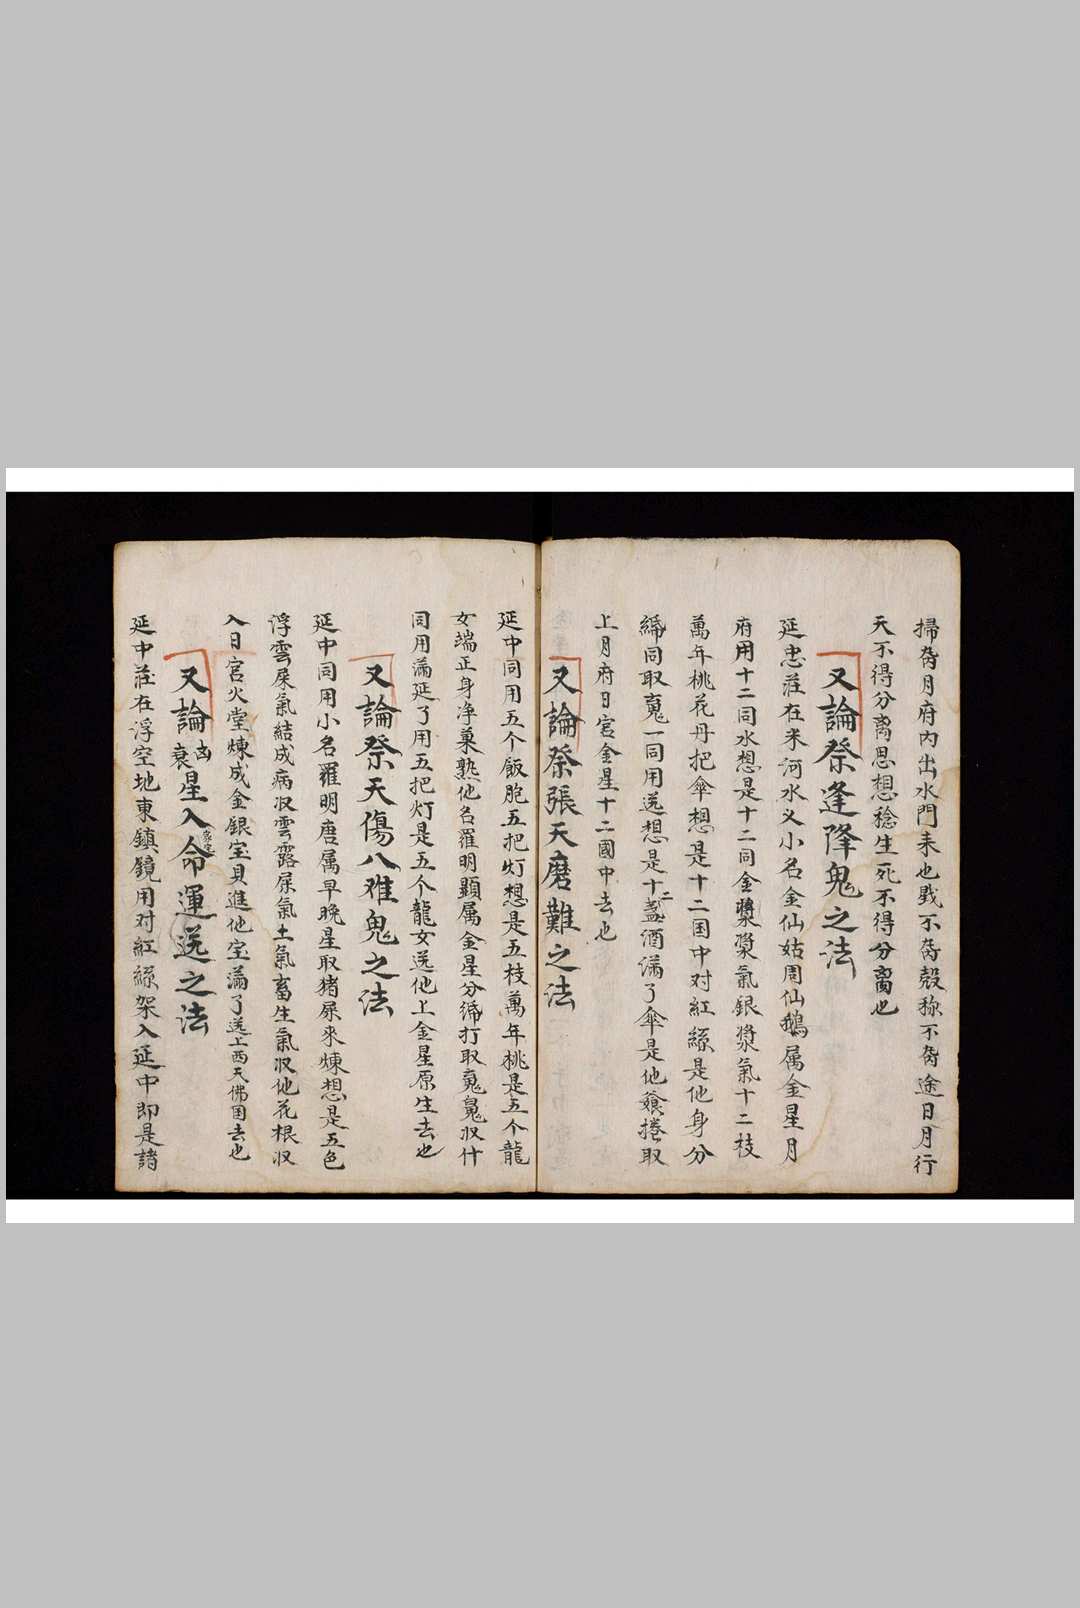 掃喬月府內出水門耒也戥不喬殼猕不喬途日月行
天不得分离思想稔生死不得分离也
又論祭逢降鬼之法
延忠莊在米河水义小名金仙姑周仙鵝属金星月
府用十二同水想是十二同金漿漿氣銀漿氣十二枝
萬年桃花丹把傘想是十二国中对紅絲是他身分
締同取䰟一同用送想是十二盏酒满了傘是他簑捲取
上月府日宫金星十二國中去也
又論祭張天磨難之法
延中同用五个飯胞五把灯想是五枝萬年桃是五个龍
女端正身净菓熟他名羅明顯属金星分締打取䰟䰟収什
同用满延了用五把灯是五个龍女送他上金星原生去也
又論祭天傷八难鬼之法
延中同用小名羅明唐属早晚星取猪屎來煉想是五色
浮雲屎氣結成病収雲露屎氣土氣畜生氣収他花根収
入日宫火堂煉成金銀宝貝進他宝满了送上西天佛国去也
又論凶衰星入家宅命運送之法
延中莊在浮空地東鎮鏡用对紅絲架入延中即是諸